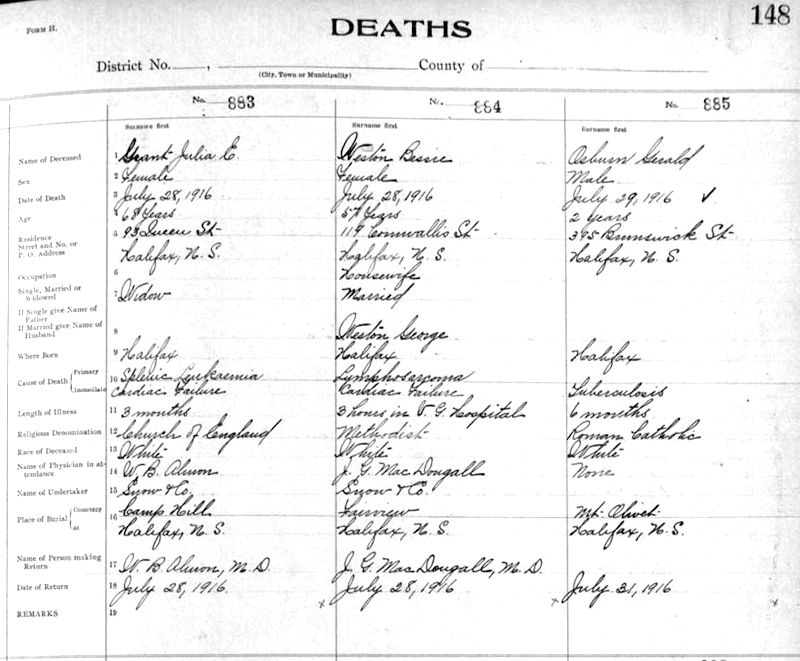 FORM H.
DEATHS
148
District No. , County of
(City, Town or Municipality)
No. 883 No. 884 No. 885
Surname first Surname first Surname first
Name of Deceased 1 Grant Julia E. Weston Bessie Osburn Gerald
Sex 2 Female Female Male
Date of Death 3 July 28, 1916 July 28, 1916 July 29, 1916 ✓
Age 4 68 Years 57 Years 2 years
Residence Street and No. or P. O. Address 5 93 Queen St 119 Cornwallis St 395 Brunswick St
Halifax, N. S. Halifax, N. S. Halifax, N. S.
Occupation 6 Housewife
Single, Married or Widowed 7 Widow Married
If Single give Name of Father
If Married give Name of Husband 8 Weston George
Where Born 9 Halifax Halifax Halifax
Cause of Death Primary 10 Splenic Leukaemia Lymphosarcoma
Immediate Cardiac Failure Cardiac Failure Tuberculosis
Length of Illness 11 3 months 3 hours in V. G. Hospital 6 months
Religious Denomination 12 Church of England Methodist Roman Catholic
Race of Deceased 13 White White White
Name of Physician in attendance 14 W. B. Almon J. G. MacDougall None
Name of Undertaker 15 Snow & Co. Snow & Co.
Place of Burial Cemetery 16 Camp Hill Fairview Mt. Olivet
at Halifax, N. S. Halifax, N. S. Halifax, N. S.
Name of Person making Return 17 W. B. Almon, M. D. J. G. MacDougall, M. D.
Date of Return 18 July 28, 1916. July 28, 1916 July 31, 1916
REMARKS 19 x x x